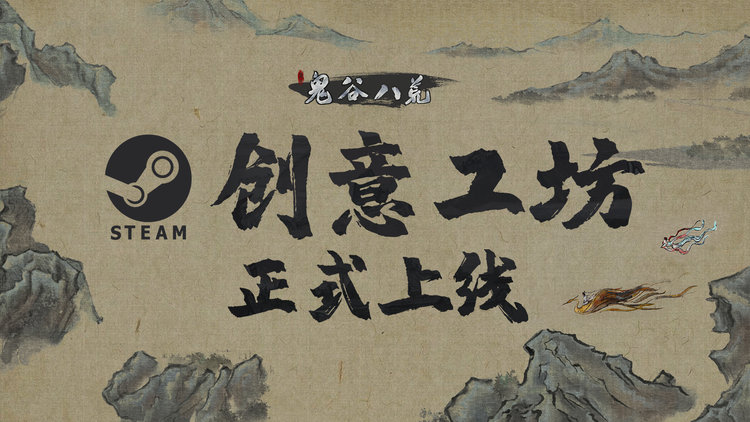 鬼谷八荒
STEAM
创意工坊
正式上线